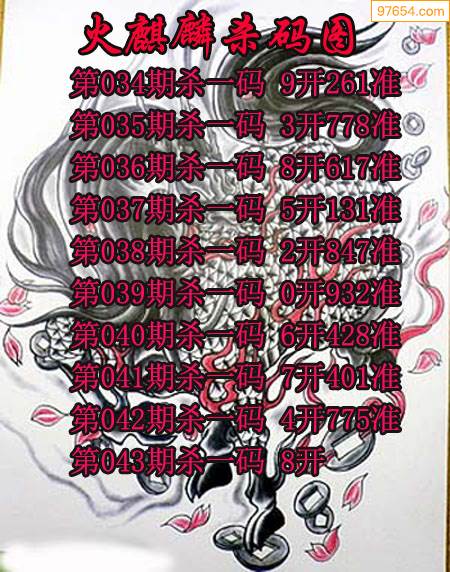 97654.com
火麒麟杀码图
第034期杀一码 9开261准
第035期杀一码 3开778准
第036期杀一码 8开617准
第037期杀一码 5开131准
第038期杀一码 2开847准
第039期杀一码 0开932准
第040期杀一码 6开428准
第041期杀一码 7开401准
第042期杀一码 4开775准
第043期杀一码 8开